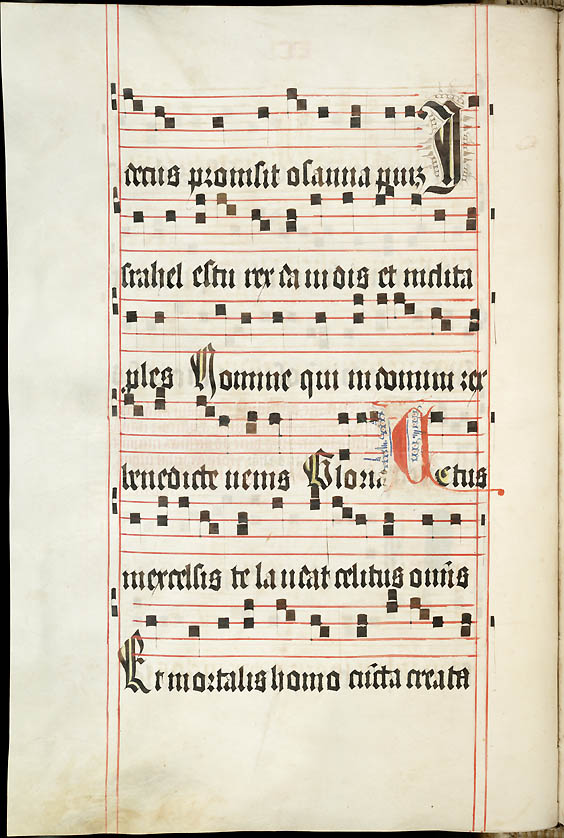 decus promisit osanna piuz I
srahel es tu rex dauidis et inclita
ples Nomine qui in domini rex
benedicte uenis Gloria Cetus
in excelsis te laudat celitus omīs
Et mortalis homo cūcta creata